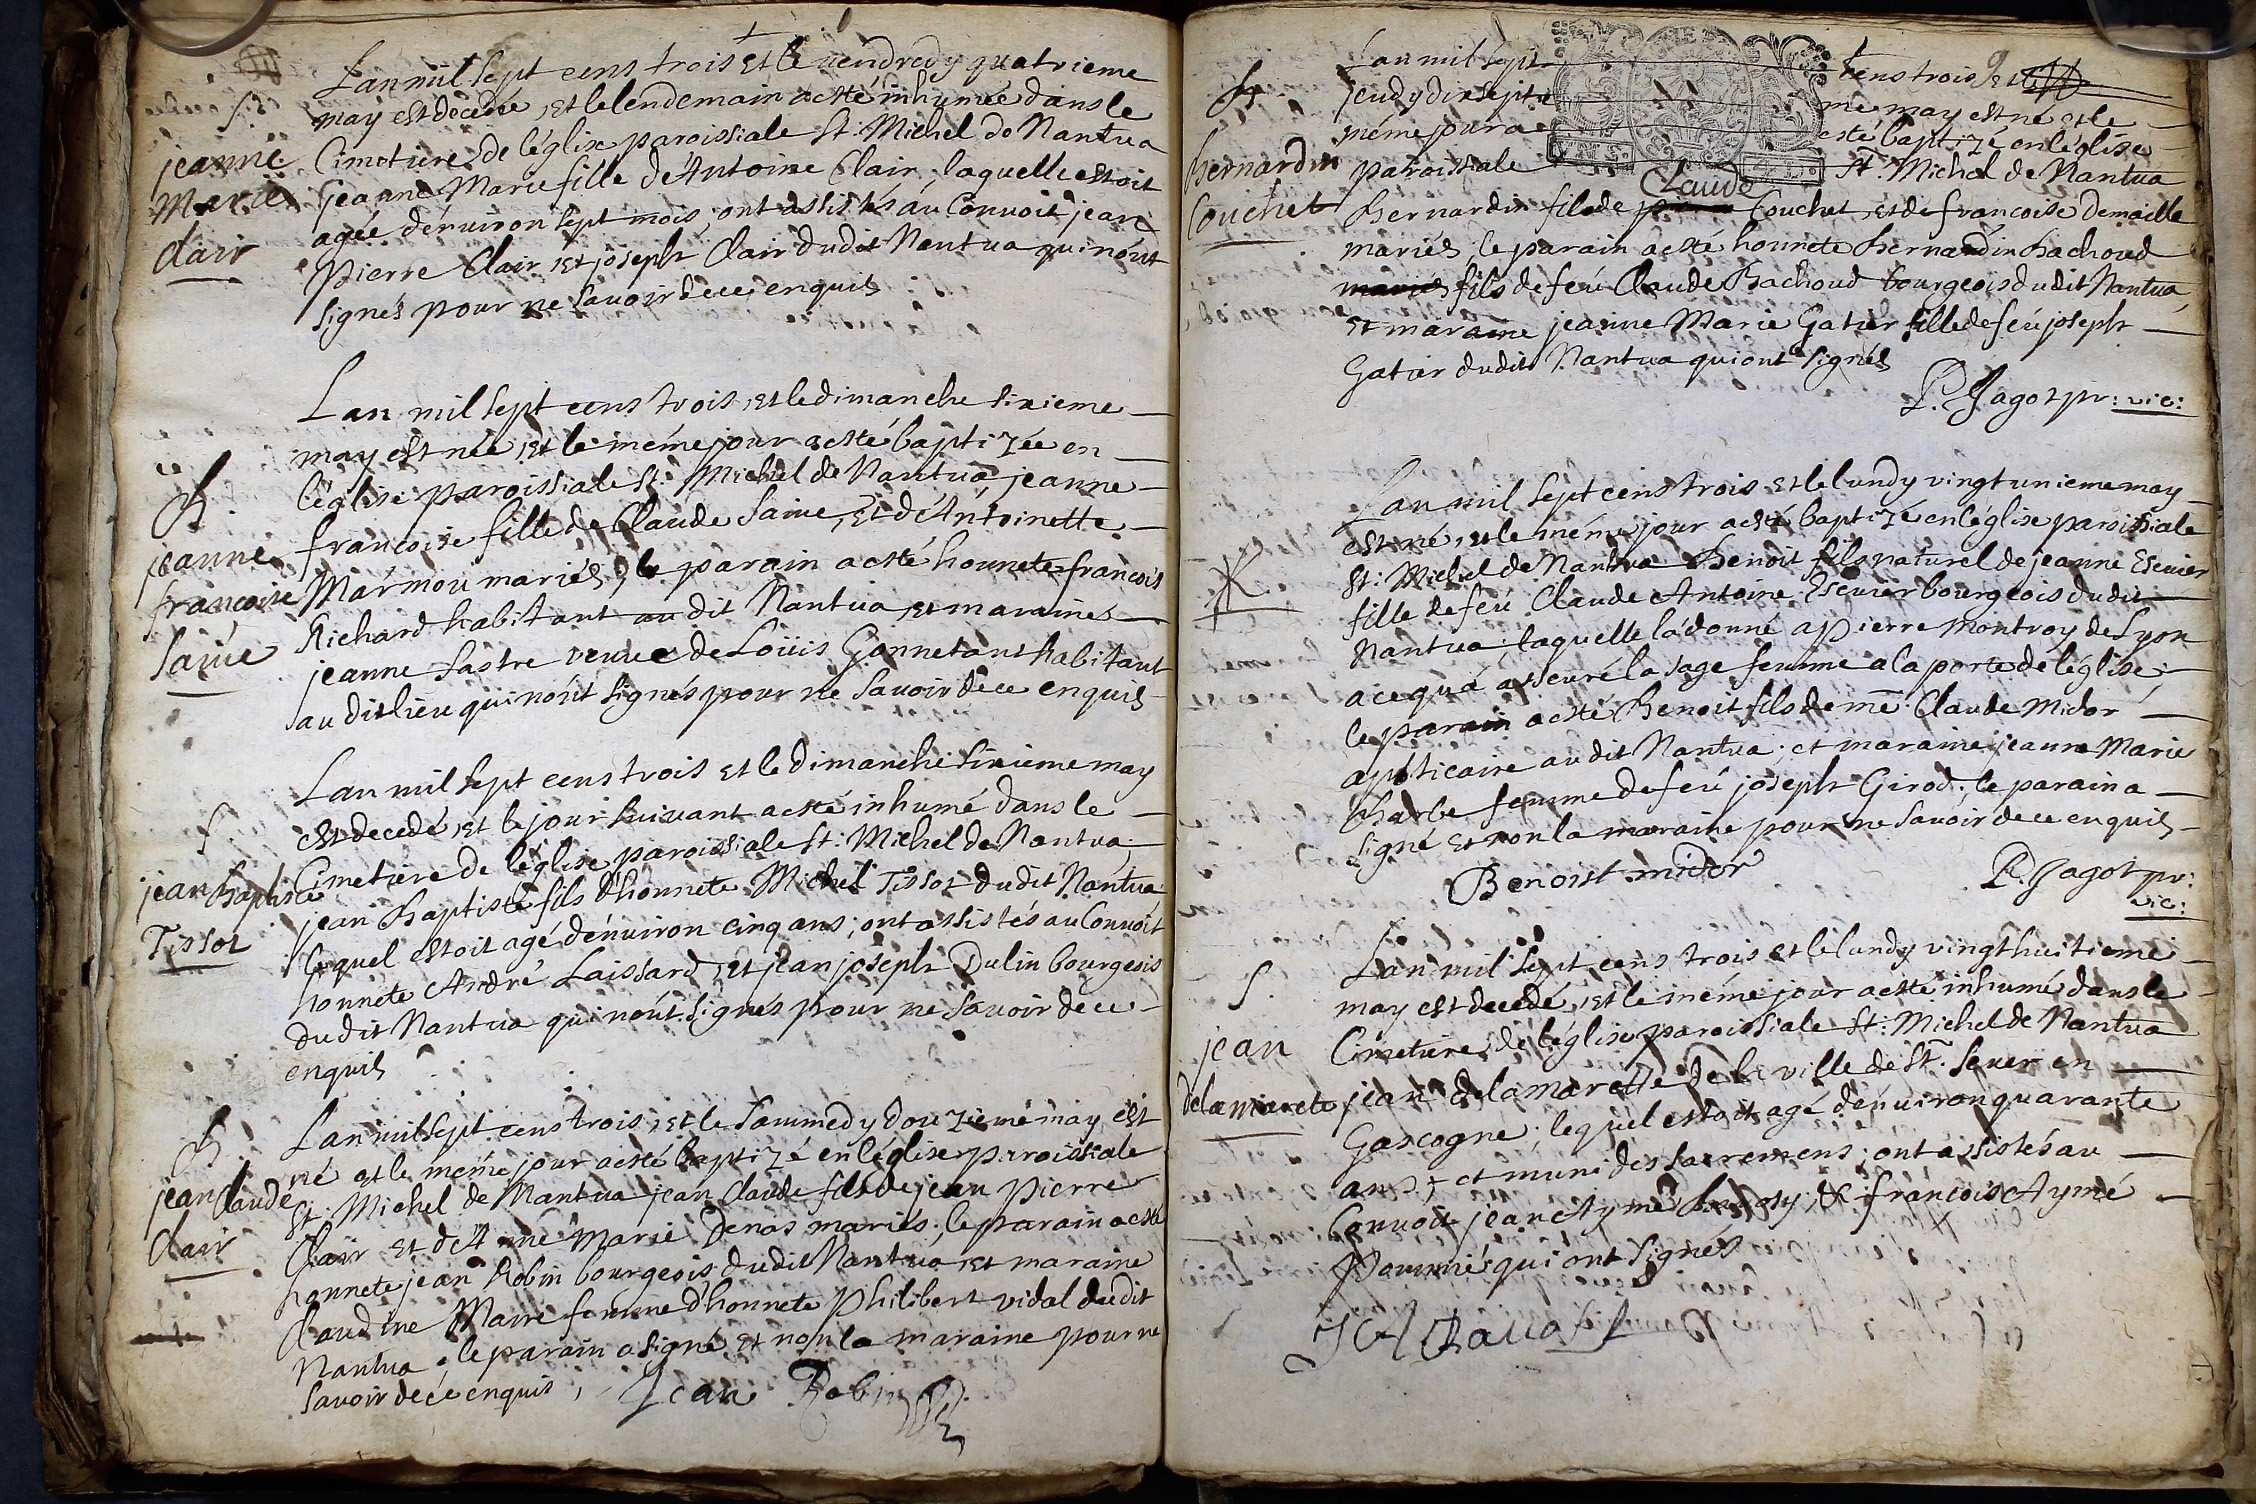 S.
jeanne
Marie
Clair
Lan mil sept cens trois et le vendredy quatrieme
may est decedée, et le lendemain a esté inhumée dans le
Cimetiere de l'église paroissiale St. Michel de Nantua
jeanne Marie fille d'Antoine Clair, laquelle estoit
agée d'énuiron sept mois, ont assistés au Conuoit jean
Pierre Clair et joseph Clair dudit Nantua qui n'ont
signés pour ne sauoir de ce enquis
B.
jeanne
francoise
Saine
Lan mil sept cens trois, et le dimanche sixieme
may est née, et le méme jour a esté baptizée en
l'église paroissiale St. Michel de Nantua jeanne
francoise fille de Claude Saine, et d'Antoinette
Marmou mariés, le parain a esté honnete francois
Richard habitant au dit Nantua, et maraine
jeanne Sastre venue de Loüis Gonnetant habitant
au dit lieu qui n'ont signés pour ne sauoir de ce enquis
S.
jean baptiste
Tissot
Lan mil sept cens trois et le dimanche sixieme may
est decedé, et le jour suiuant a esté inhumé dans le
Cimetiere de l'église paroissiale St: Michel de Nantua,
jean Baptiste fils d'honnete Michel Tissot dudit Nantua
lequel estoit agé d'énuiron cinq ans; ont assistés au Conuoit
honnete André Laissard, et jean joseph Dulin bourgeois
dudit Nantua qui n'ont signés pour ne sauoir de ce
enquis
B.
jean Claude
Clair
Lan mil sept cens trois, et le sammedy douzieme may est
né et le meme jour a esté baptizé en l'église paroissiale
St. Michel de Nantua jean Claude fils de jean Pierre
Clair et d'Anne Marie Denas mariés, le parain a esté
honnete jean Robin bourgeois dudit Nantua et maraine
Claudine Maire femme d'honnete Philibert vidal dudit
Nantua. le parain a signé et non la maraine pour ne
sauoir de ce enquis, Jean Robin
B.
Bernardin
Couchet
Lan mil sept cens trois et le
jeudy dixseptie me may est né et le
méme jour a esté baptizé en l'église
paroissiale St. Michel de Nantua
Claude
Bernardin fils de Couchet, et de francoise Demaille
mariés, le parain a esté honnete Bernardin Bachoud
mariés fils de feu Claude Bachoud bourgeois dudit Nantua,
et maraine jeanne Marie Gatier fille de feu joseph
Gatier dudit Nantua qui ont signés
P. Jagot pr: vic:
Lan mil sept cens trois et le lundy vingt unieme may
est né, et le méme jour a esté baptizé en l'église paroissiale
St: Michel de Nantua Benoit fils naturel de jeanne Escuier
fille de feu Claude Antoine Escuier bourgeois dudit
Nantua, laquelle l'a donné a Pierre Montroy de Lyon
a ce qu'a asseuré la sage femme a la porte de l'église,
le parain a esté Benoit fils de me Claude Midor
apoticaire au dit Nantua; et maraine jeanne Marie
Barbe femme de feu joseph Girod; le parain a
signé et non la maraine pour ne sauoir de ce enquis
Benoist midor
P. Jagot pr:
vic:
S.
jean
delamarete
Lan mil sept cens trois et le lundy vingt huitieme
may est decedé, et le méme jour a esté inhumé dans le
Cimetiere de l'église paroissiale St: Michel de Nantua
jean delamarette de la ville de St. Seuer en
Gascogne, lequel estoit agé d'énuiron quarante
ans, et muni des sacremens; ont assistés au
Conuoit jean Aymé & françois Aymé
qui ont signés